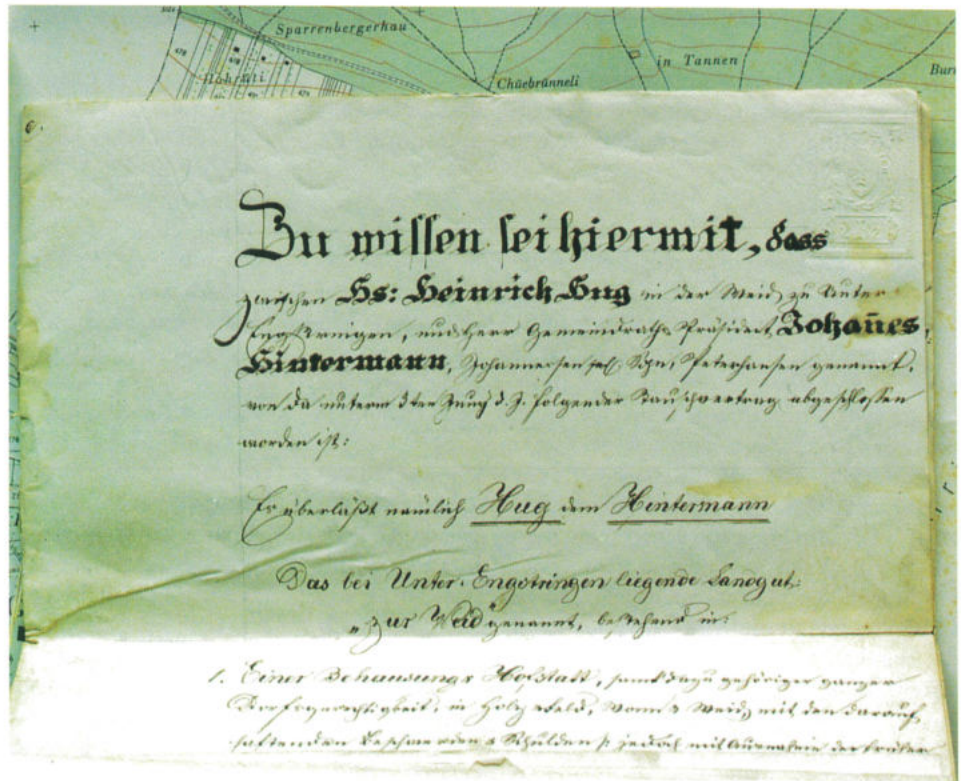 Sparrenbergerhau
in Tannen
Chüebrünneli
Zu wissen sei hiermit, dass
zwischen Hs: Heinrich Hug in der Weid, zu Unter-
Engstringen, und Herr Gemeindraths Präsident, Joh̅an̅es
Hintermann, Johannesen sel. Sohn, Peterhansen genannt,
von da unterm 3ten Juny d. J. folgender Tauschvertrag abgeschlossen
worden ist:
Es überläßt nämlich Hug dem Hintermann
Das bei Unter-Engstringen liegende Landgut
"zur Weid" genannt, bestehend in:
1. Einer Behausung & Hofstatt, samt dazu gehöriger ganzer
Dorfgerechtigkeit, in Holz & Feld, Wonn & Weid, mit den darauf
haftenden Beschwerden & Schulden jedoch mit Ausnahme der früher